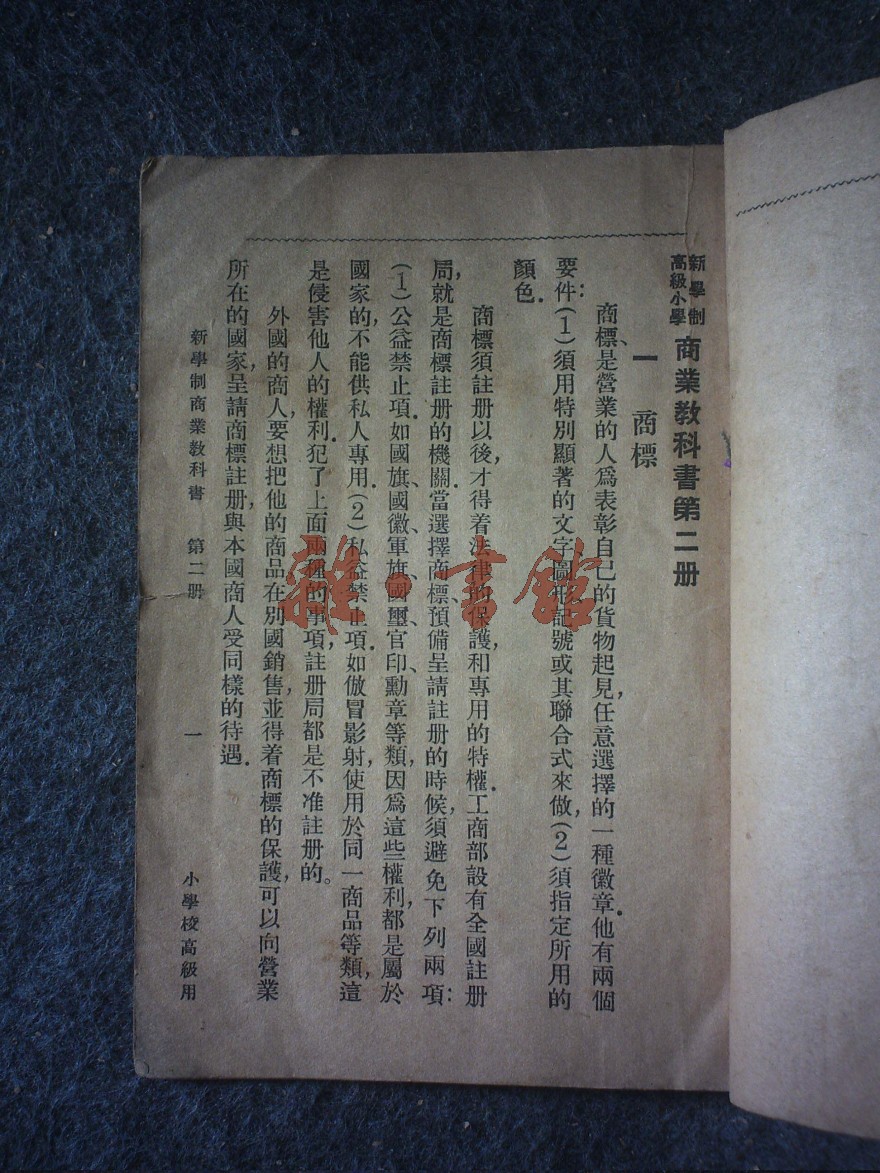 新學制
高級小學
商業教科書第二册
一 商標
商標、是營業的人爲表彰自己的貨物起見，任意選擇的一種徽章．他有兩個
要件：(1)須用特別顯著的文字圖形記號或其聯合式來做，(2)須指定所用的
顏色．
商標須註册以後，才得着法律的保護，和專用的特權．工商部設有全國註册
局，就是商標註册的機關．當選擇商標、預備呈請註册的時候，須避免下列兩項：
(1)公益禁止項．如國旗、國徽、軍旗、國璽、官印、勳章等類，因爲這些權利，都是屬於
國家的，不能供私人專用．(2)私益禁止項．如倣冒影射，使用於同一商品等類，這
是侵害他人的權利．犯了上面兩種的事項，註册局都是不准註册的。
外國的商人，要想把他的商品在別國銷售，並得着商標的保護，可以向營業
所在的國家，呈請商標註册，與本國商人受同樣的待遇．
新學制商業教科書 第二册 一 小學校高級用
雜·書館